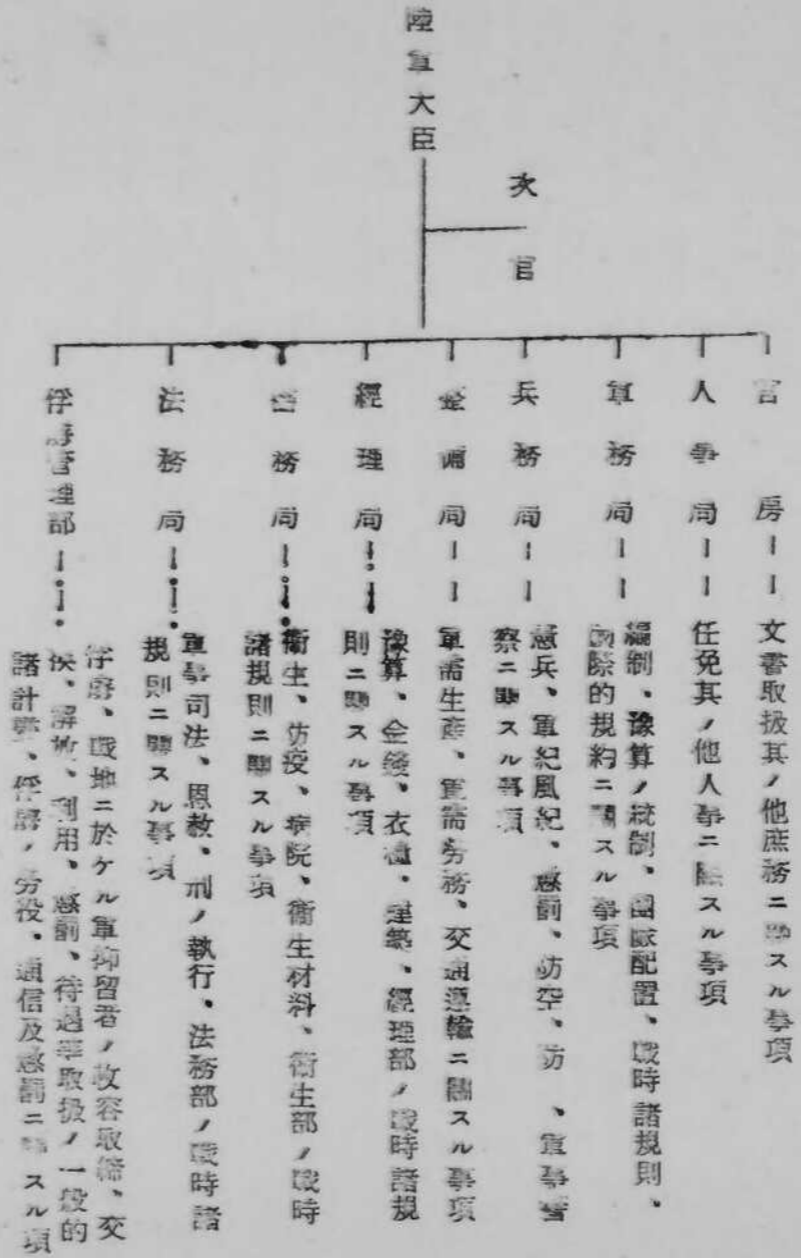 陸軍大臣
次官
官房 文書取扱其ノ他庶務ニ關スル事項
人事局 任免其ノ他人事ニ關スル事項
軍務局 編制、豫算ノ統制、團隊配置、戰時諸規則、
國際的規約ニ關スル事項
兵務局 憲兵、軍紀風紀、懲罰、防空、防 、軍事警
察ニ關スル事項
整備局 軍需生産、軍需勞務、交通運輸ニ關スル事項
經理局 豫算、金錢、衣糧、建築、經理部ノ戰時諸規
則ニ關スル事項
医務局 衞生、防疫、病院、衞生材料、衞生部ノ戰時
諸規則ニ關スル事項
法務局 軍事司法、恩赦、刑ノ執行、法務部ノ戰時諸
規則ニ關スル事項
俘虜管理部 俘虜、戰地ニ於ケル軍抑留者ノ收容取締、交
換、解放、利用、懲罰、待遇等取扱ノ一般的
諸計畫、俘虜ノ勞役、通信及懲罰ニ關スル項